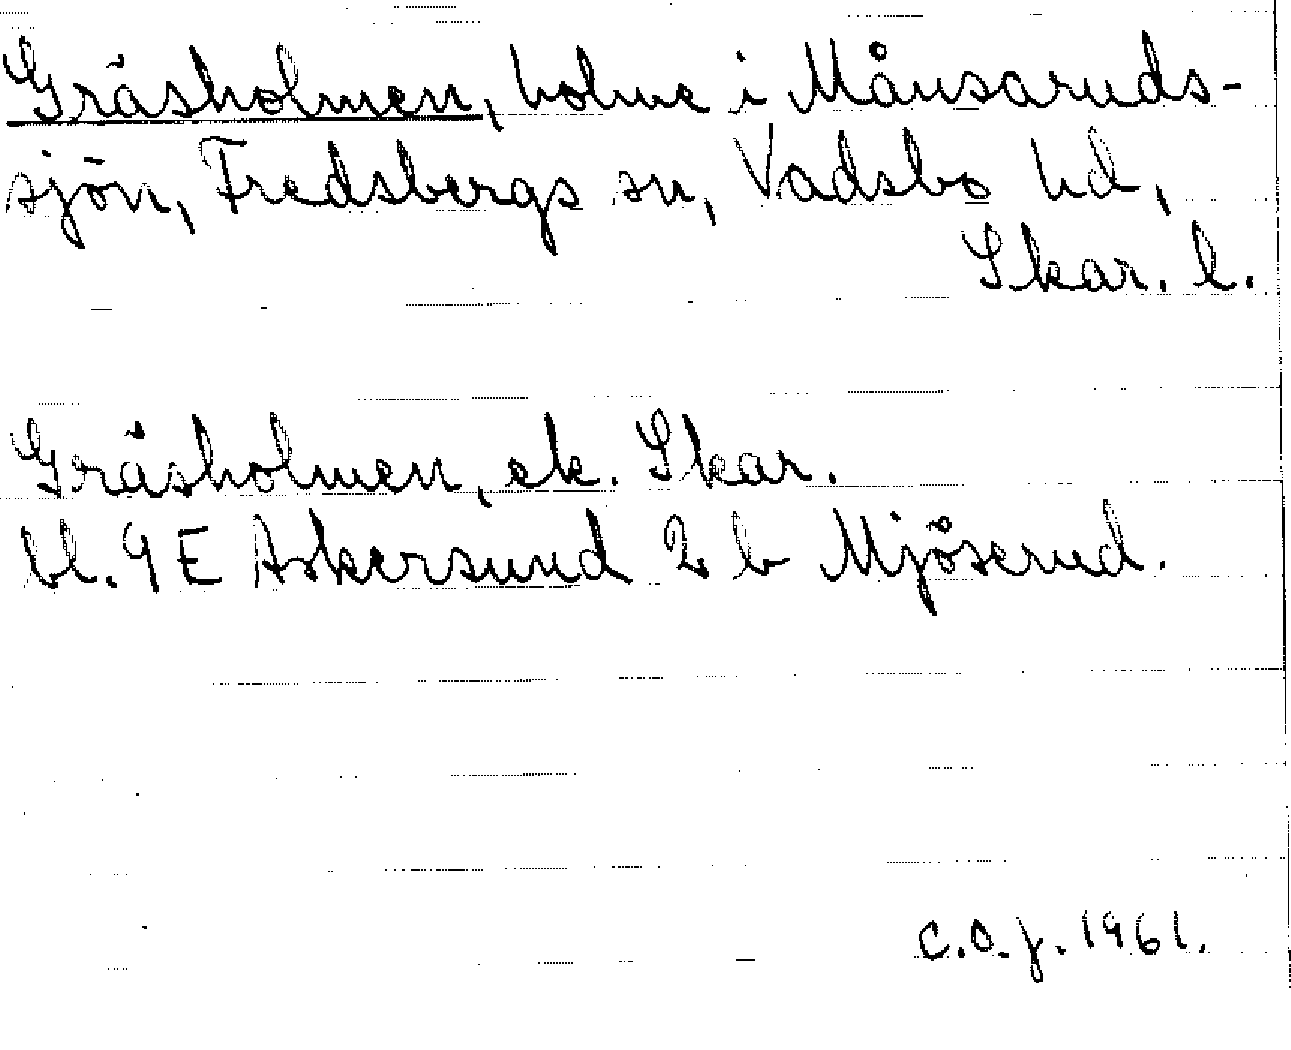 Gräsholmen, holme i Månsaruds-
sjön, Fredsbergs sn, Vadsbo hd,
Skar. l.
Gräsholmen, ek. Skar.
bl. 9 E Askersund 2 b Mjöserud.
C.O.J. 1961.